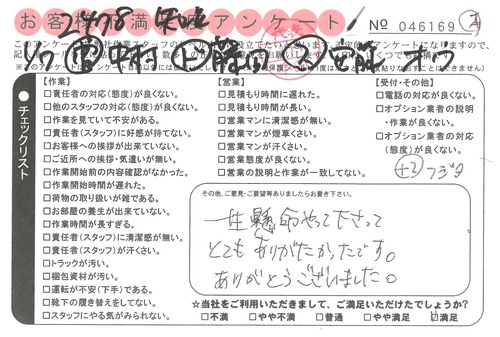 お客様不満足アンケート
2478
No 046169
このアンケートは
チェックリスト
【作業】
□責任者の対応(態度)が良くない。
□他のスタッフの対応(態度)が良くない。
□作業を見ていて不安がある。
□責任者(スタッフ)に好感が持てない。
□お客様への挨拶が出来ていない。
□ご近所への挨拶・気遣いが無い。
□作業開始前の内容確認がなかった。
□作業開始時間が遅れた。
□荷物の取り扱いが雑である。
□お部屋の養生が出来ていない。
□作業時間が長すぎる。
□責任者(スタッフ)に清潔感が無い。
□責任者(スタッフ)が汗くさい。
□トラックが汚い。
□梱包資材が汚い。
□運転が不安(下手)である。
□靴下の履き替えをしてない。
□スタッフにやる気がみられない。
【営業】
□見積もり時間に遅れた。
□見積もり時間が長い。
□営業マンに清潔感が無い。
□営業マンが煙草くさい。
□営業マンが汗くさい。
□営業態度が良くない。
□営業の説明と作業が一致してない。
【受付・その他】
□電話の対応が良くない。
□オプション業者の説明・作業が良くない。
□オプション業者の対応(態度)が良くない。
その他、ご意見・ご要望等ありましたらお書き下さい。
一生懸命やって下さって
とてもありがたかったです。
ありがとうございました。
☆当社をご利用いただきまして、ご満足いただけたでしょうか?
□不満 □やや不満 □普通 □やや満足 ☑満足